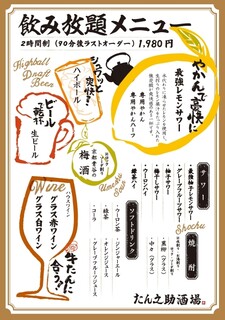 飲み放題メニュー
2時間制（90分後ラストオーダー）1,980円
Highball
Draft
Beer
シュワッと
爽快！
ハイボール
やかんで豪快に
最強レモンサワー
専用やかん
専用やかんハーフ
ビールで乾杯
生ビール
梅酒
Umeshu
Sour
Wine
ハウスワイン
グラス赤ワイン
グラス白ワイン
牛たんに
合う！
サワー
・最強レモンサワー
・柚子サワー
・グレープフルーツサワー
・ウーロンハイ
・緑茶ハイ
Shochu
焼酎
・黒霧（グラス）
・中々（グラス）
ソフトドリンク
・ウーロン茶
・緑茶
・コーラ
・ジンジャーエール
・オレンジジュース
・グレープフルーツジュース
たん之助酒場